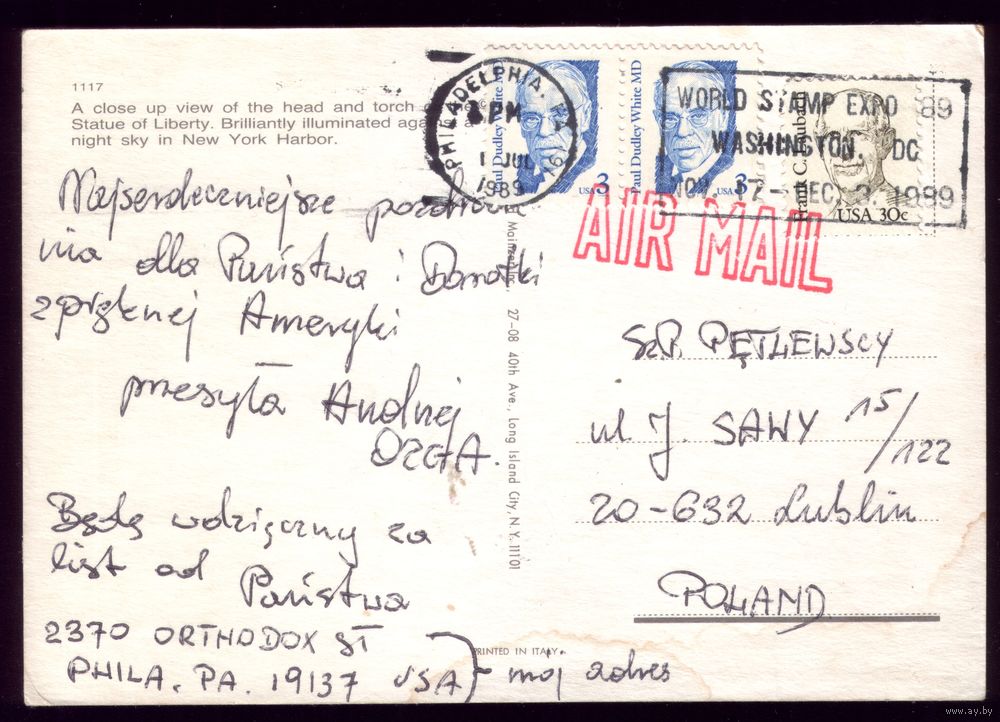 1117
A close up view of the head and torch of the
Statue of Liberty. Brilliantly illuminated against a
night sky in New York Harbor.
Najserdeczniejsze pozdrowie
nia dla Państwa i Donatki
z pięknej Ameryki
przesyła Andrzej
ORGA.
Będę wdzięczny za
list od Państwa
2370 ORTHODOX ST
PHILA. PA. 19137 USA } - mój adres
PRINTED IN ITALY
27-08 40th Ave., Long Island City, N.Y. 11101
PHILADELPHIA, PA 191
PM
1 JUL
1989
Paul Dudley White MD
USA 3
Paul Dudley White MD
USA 3
USA 30c
WORLD STAMP EXPO 89
WASHINGTON, DC
NOV. 17 - DEC. 3, 1989
AIR MAIL
Sz.P. PĘTLEWSCY
ul J. SAWY 15/122
20-632 Lublin
POLAND
www.ay.by